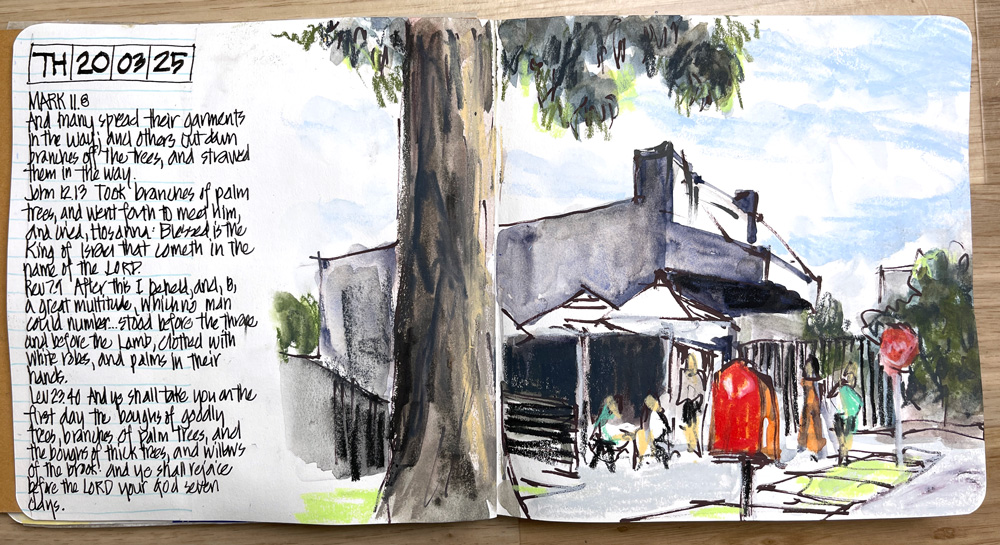 TH 20 03 25
MARK 11.8
And many spread their garments
in the way; and others cut down
branches off the trees, and strawed
them in the way.
John 12.13 Took branches of palm
trees, and went forth to meet him,
and cried, Hosanna: Blessed is the
King of Israel that cometh in the
name of the LORD.
Rev 7.9 After this I beheld, and, lo,
a great multitude, which no man
could number... stood before the throne
and before the Lamb, clothed with
white robes, and palms in their
hands.
Lev 23.40 And ye shall take you on the
first day the boughs of goodly
trees, branches of palm trees, and
the boughs of thick trees, and willows
of the brook; and ye shall rejoice
before the LORD your God seven
days.